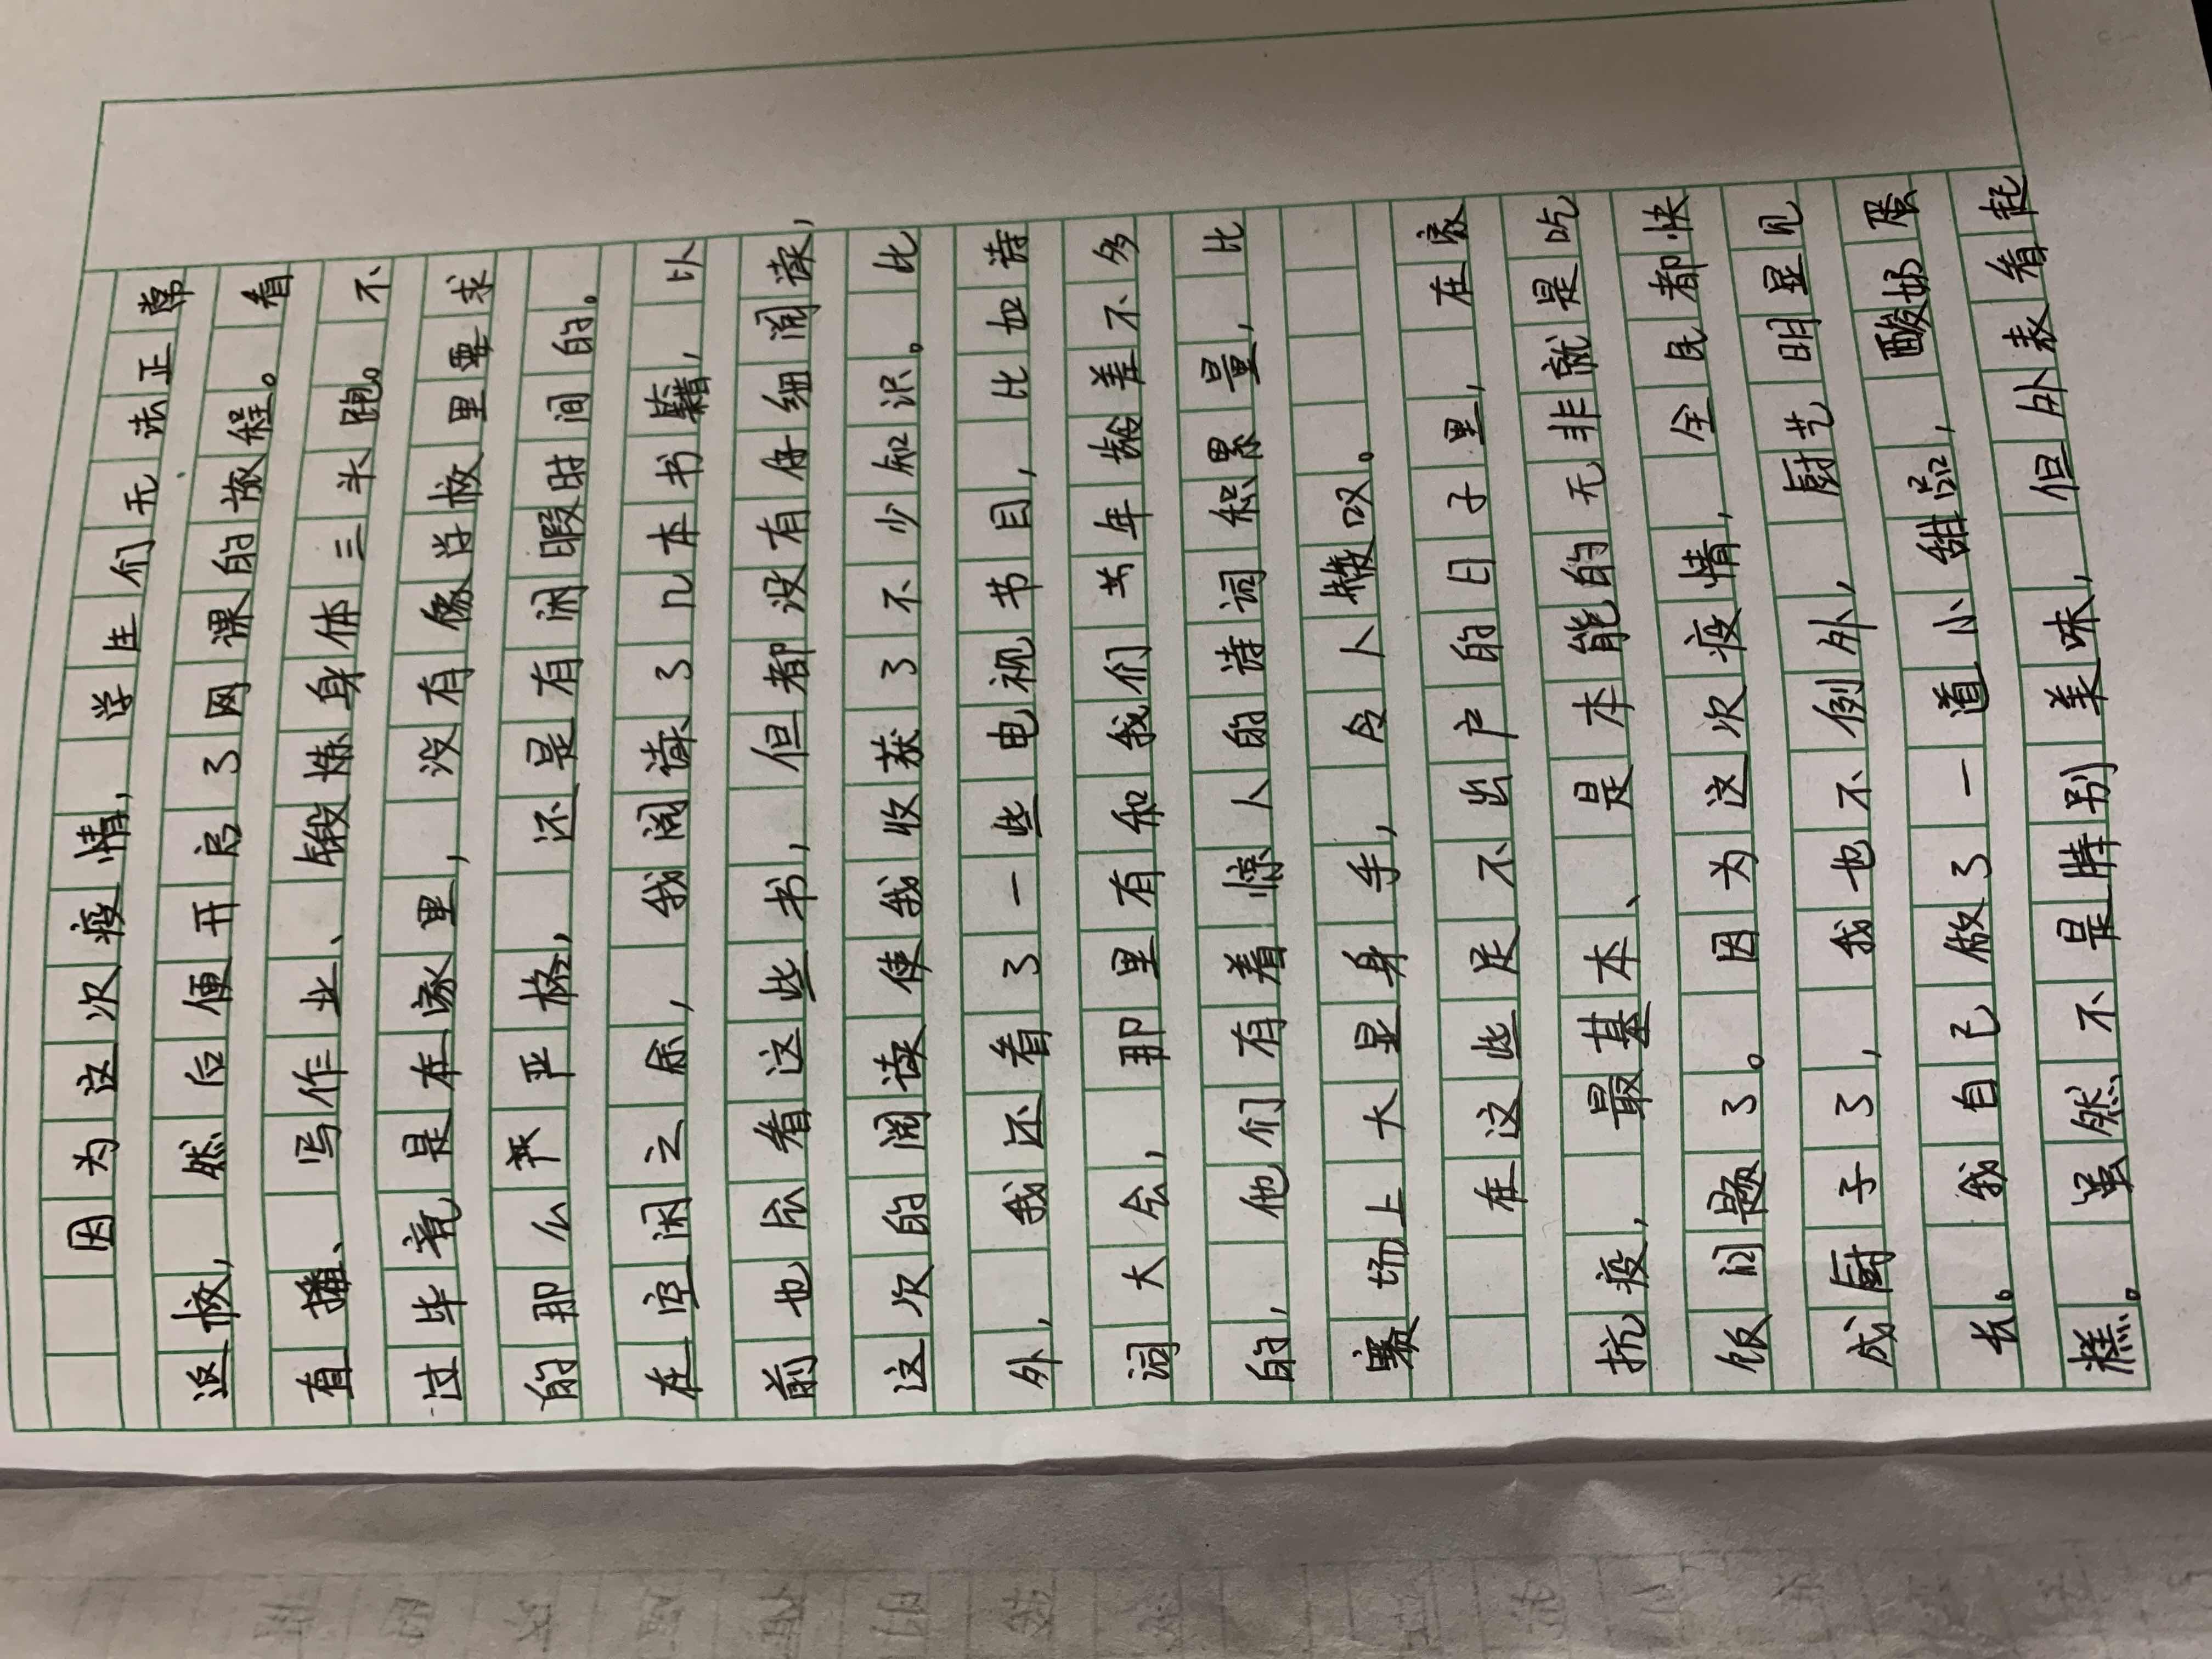 因为这次疫情，学生们无法正常
返校，然后便开启了网课的旅程。看
直播、写作业、锻炼身体三头跑。不
过毕竟是在家里，没有像学校里要求
的那么严严格，还是有闲暇时间的。
在空闲之余，我阅读了几本书籍，以
前也会看这些书，但都没有仔细阅读，
这次的阅读使我收获了不少知识。此
外，我还看了一些电视节目，比如诗
词大会，那里有和我们共年龄差不多
的，他们有着惊人的诗词积累量，比
赛场上大显身手，令人赞叹。
在这些足不出户的日子里，在家
抗疫，最基本、是本能的无非就是吃
饭问题了。因为这次疫情，全民都快
成厨子了，我也不例外，厨艺明显见
长。我自己做了一道小甜品，酸奶蛋
糕。虽然不是特别美味，但外表看起